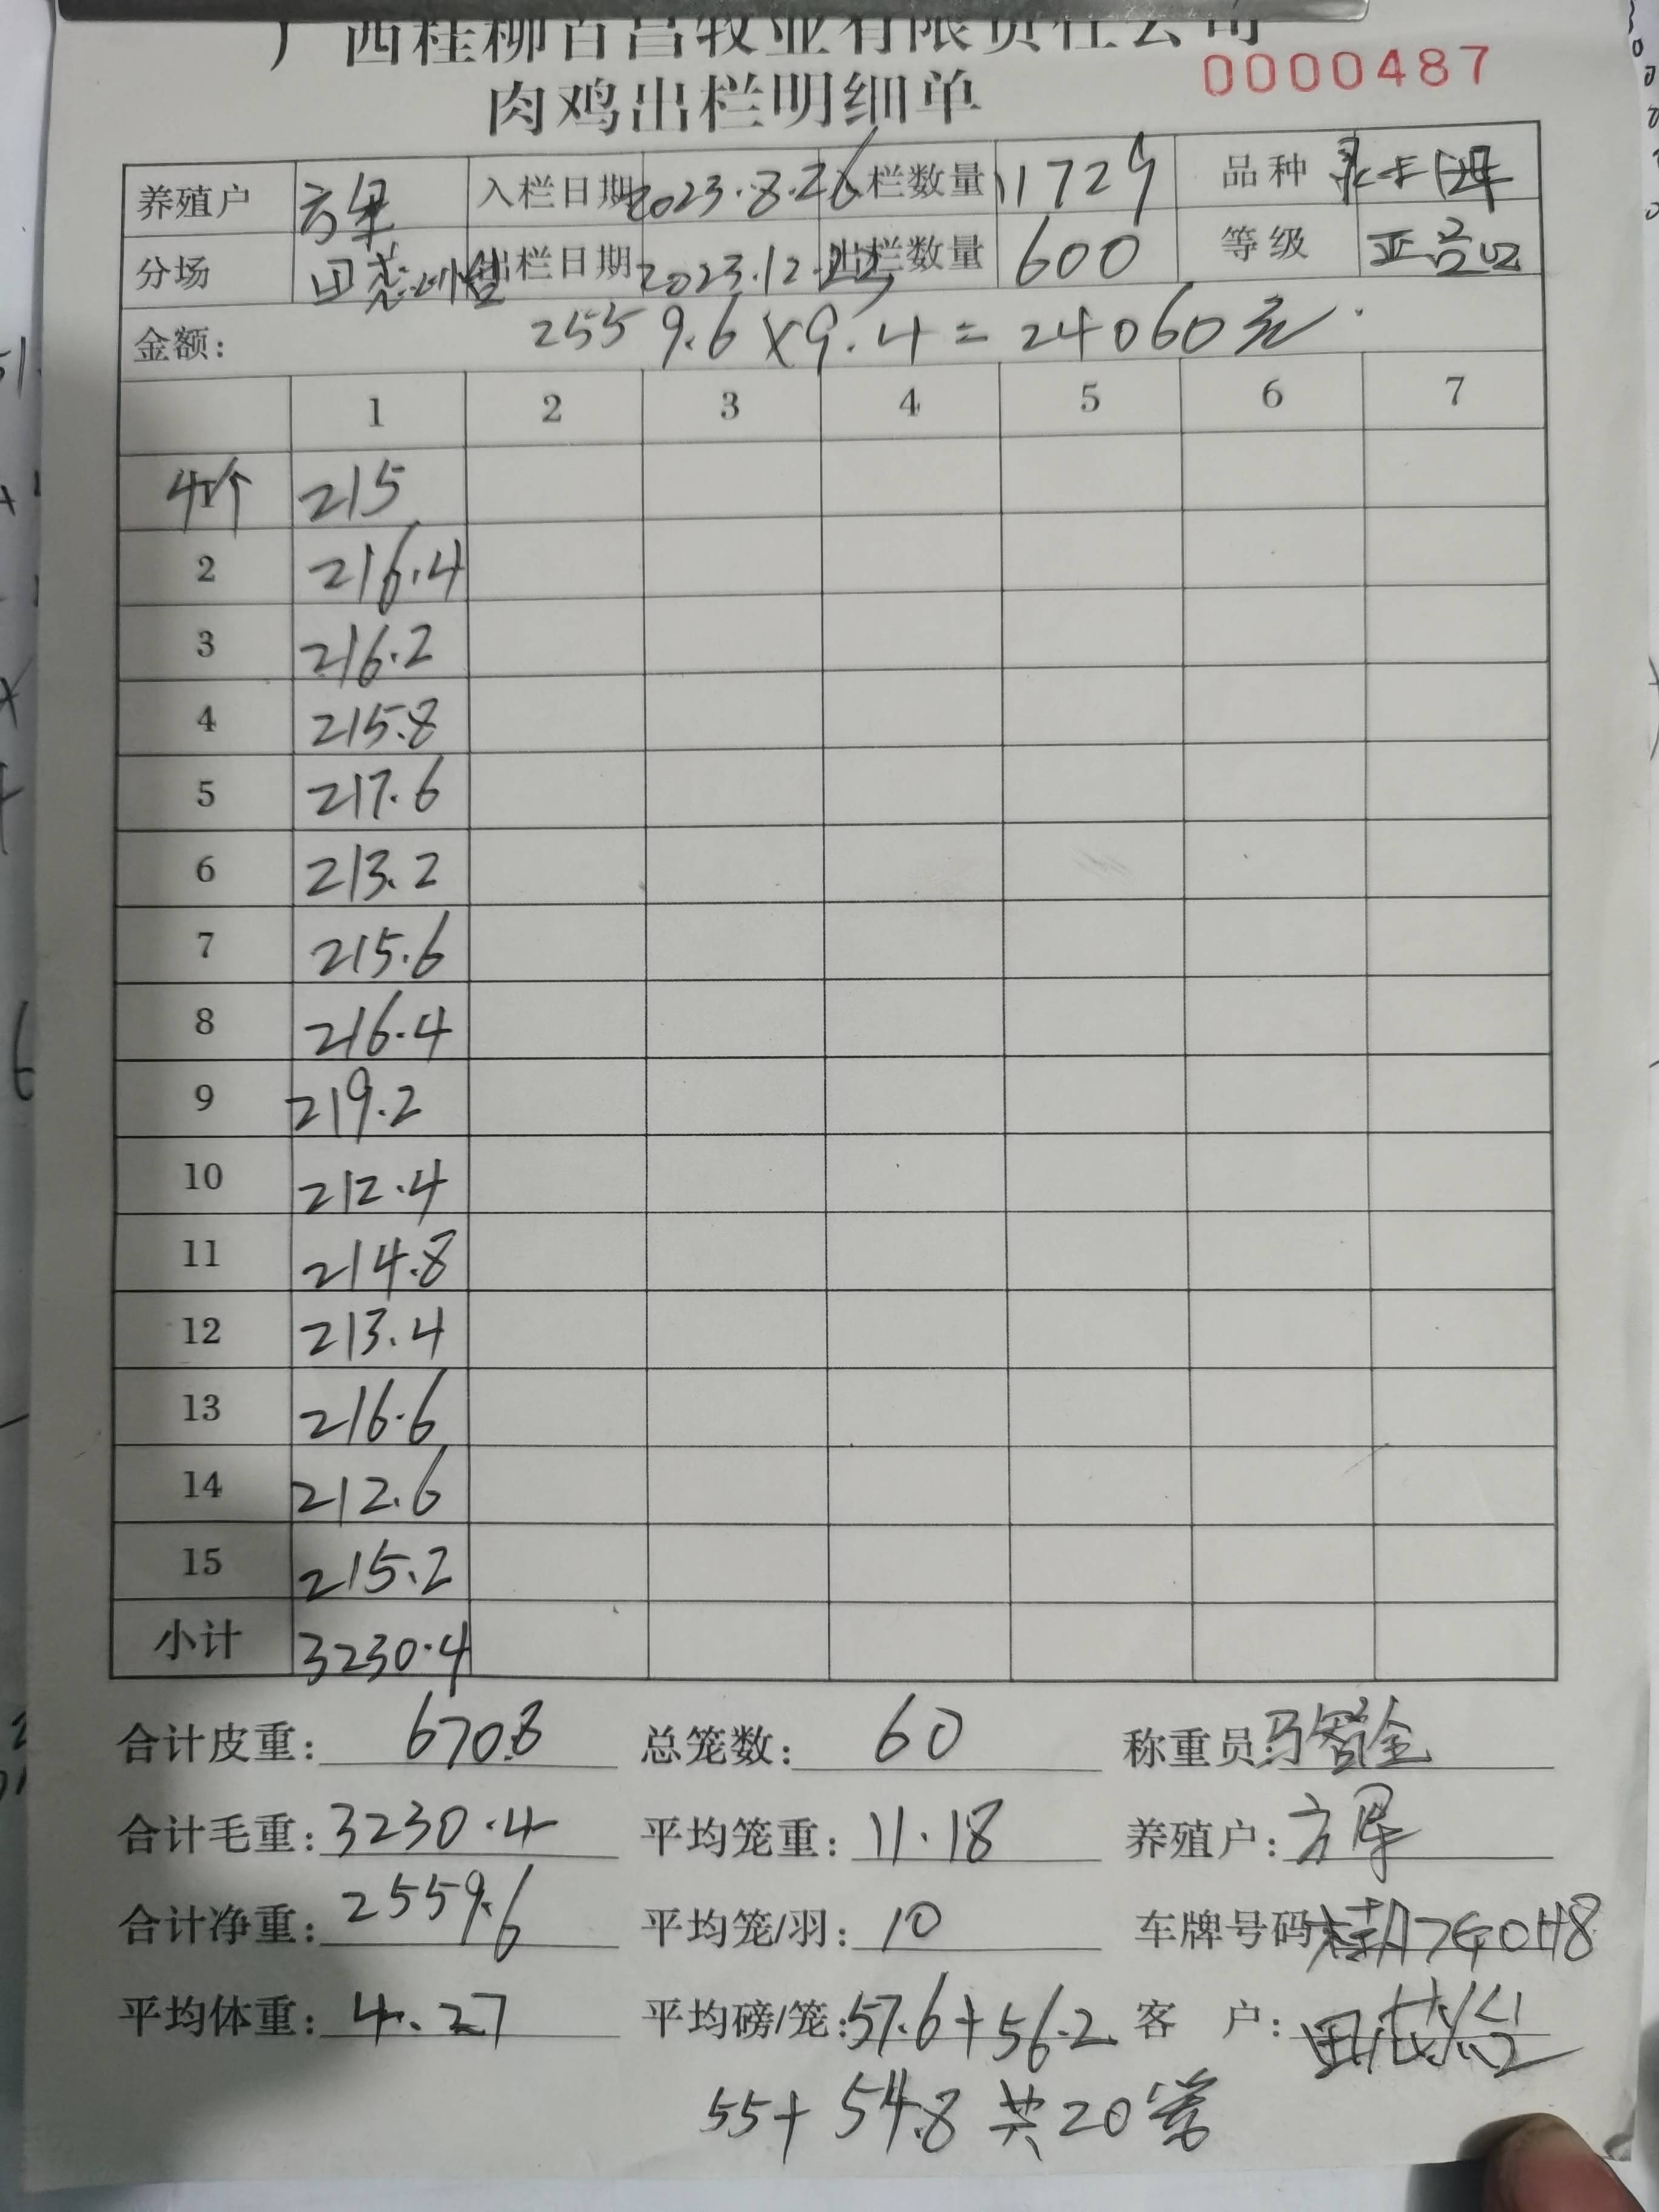 广西桂柳百昌牧业有限责任公司
肉鸡出栏明细单 0000487
养殖户 入栏日期 2023.8.26 入栏数量 11729 品种
分场 出栏日期 2023.12.22 出栏数量 600 等级
金额: 2559.6×9.4=24060元
1 2 3 4 5 6 7
4个 215
2 216.4
3 216.2
4 215.8
5 217.6
6 213.2
7 215.6
8 216.4
9 219.2
10 212.4
11 214.8
12 213.4
13 216.6
14 212.6
15 215.2
小计 3230.4
合计皮重: 670.8 总笼数: 60 称重员:
合计毛重: 3230.4 平均笼重: 11.18 养殖户:
合计净重: 2559.6 平均笼/羽: 10 车牌号码
平均体重: 4.27 平均磅/笼: 57.6+56.2 客 户:
55+54.8 共20